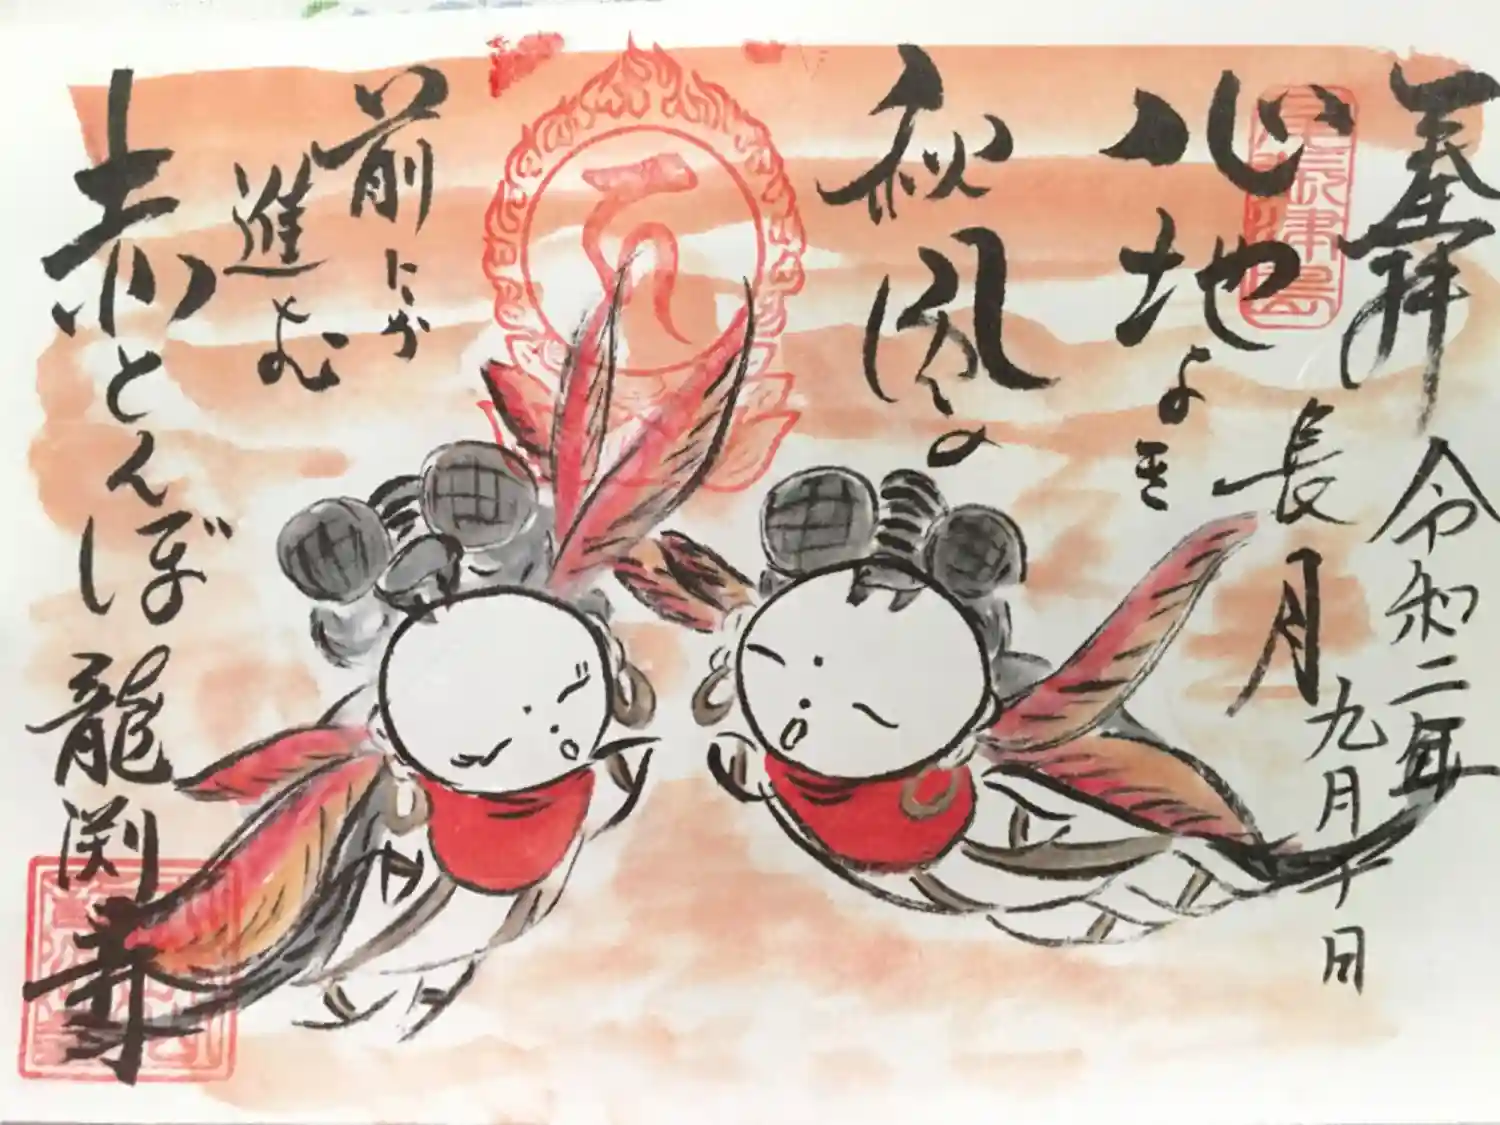 奉拝
令和二年
長月
九月十日
心地よき
秋風の
前にが
進む
赤とんぼ
龍渕寺